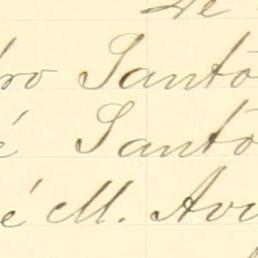 de
ro Santo
é Santo
é M. Avi